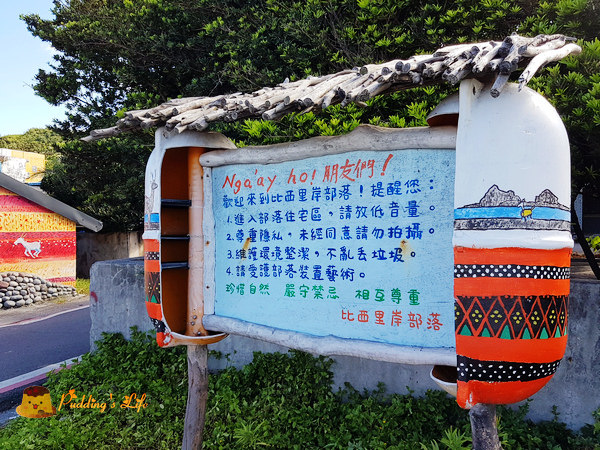 Nga'ay ho! 朋友們!
歡迎來到比西里岸部落!提醒您:
1.進入部落住宅區,請放低音量。
2.尊重隱私,未經同意請勿拍攝。
3.維護環境整潔,不亂丟垃圾。
4.請愛護部落裝置藝術。
珍惜自然 嚴守禁忌 相互尊重
比西里岸部落
Pudding's Life